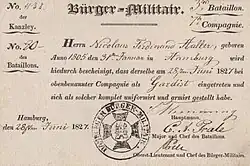 No. 1131
der
Kanzley.
No. 20
des
Bataillons.
Bürger-Militair.
Bataillon.
7te Compagnie.
Herrn Nicolaus Ferdinand Haller, geboren
Anno 1805 den 21ten Januar in Hamburg wird
hiedurch bescheinigt, dass derselbe am 28ten Juni 1827 bei
obenbenannter Compagnie als Gardist eingetreten und
sich als solcher komplet uniformirt und armirt gestellt habe.
Hamburg,
den 28ten Juni 1827
Hauptmann.
Major und Chef des Bataillons.
Oberst-Lieutenant und Chef des Bürger-Militairs.